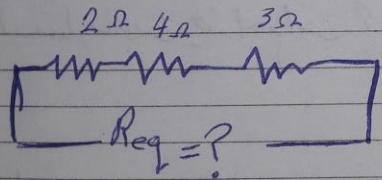 2Ω 4Ω 3Ω
Req = ?